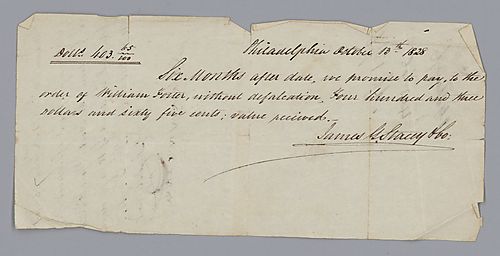 Doll.s 403. 65/100 Philadelphia October 13th 1828
Six Months after date, we promise to pay, to the
order of William Foster, without defalcation, Four hundred and three
dollars and sixty five cents; value recieved.—
James &Co.